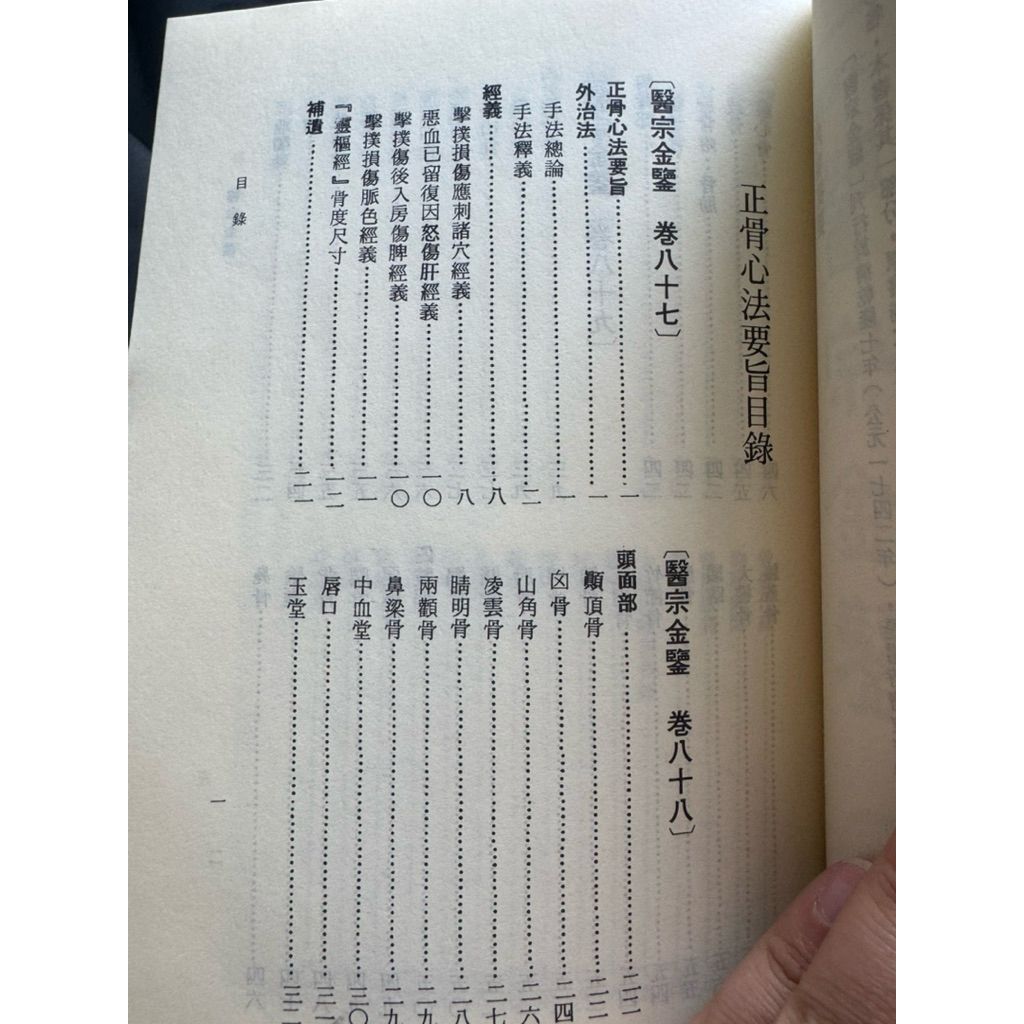 正骨心法要旨目錄
〔醫宗金鑒 卷八十七〕
正骨心法要旨……一
外治法……一
手法總論……一
手法釋義……二
經義……八
擊撲損傷應刺諸穴經義……八
惡血已留復因怒傷肝經義……一〇
擊撲傷後入房傷脾經義……一〇
擊撲損傷脈色經義……一一
『靈樞經』骨度尺寸……一二
補遺……二一
〔醫宗金鑒 卷八十八〕
頭面部……二二
顚頂骨……二二
囟骨……二四
山角骨……二六
凌雲骨……二七
睛明骨……二八
兩顴骨……二九
鼻梁骨……二九
中血堂……三〇
唇口……三一
玉堂……三二
目錄
一